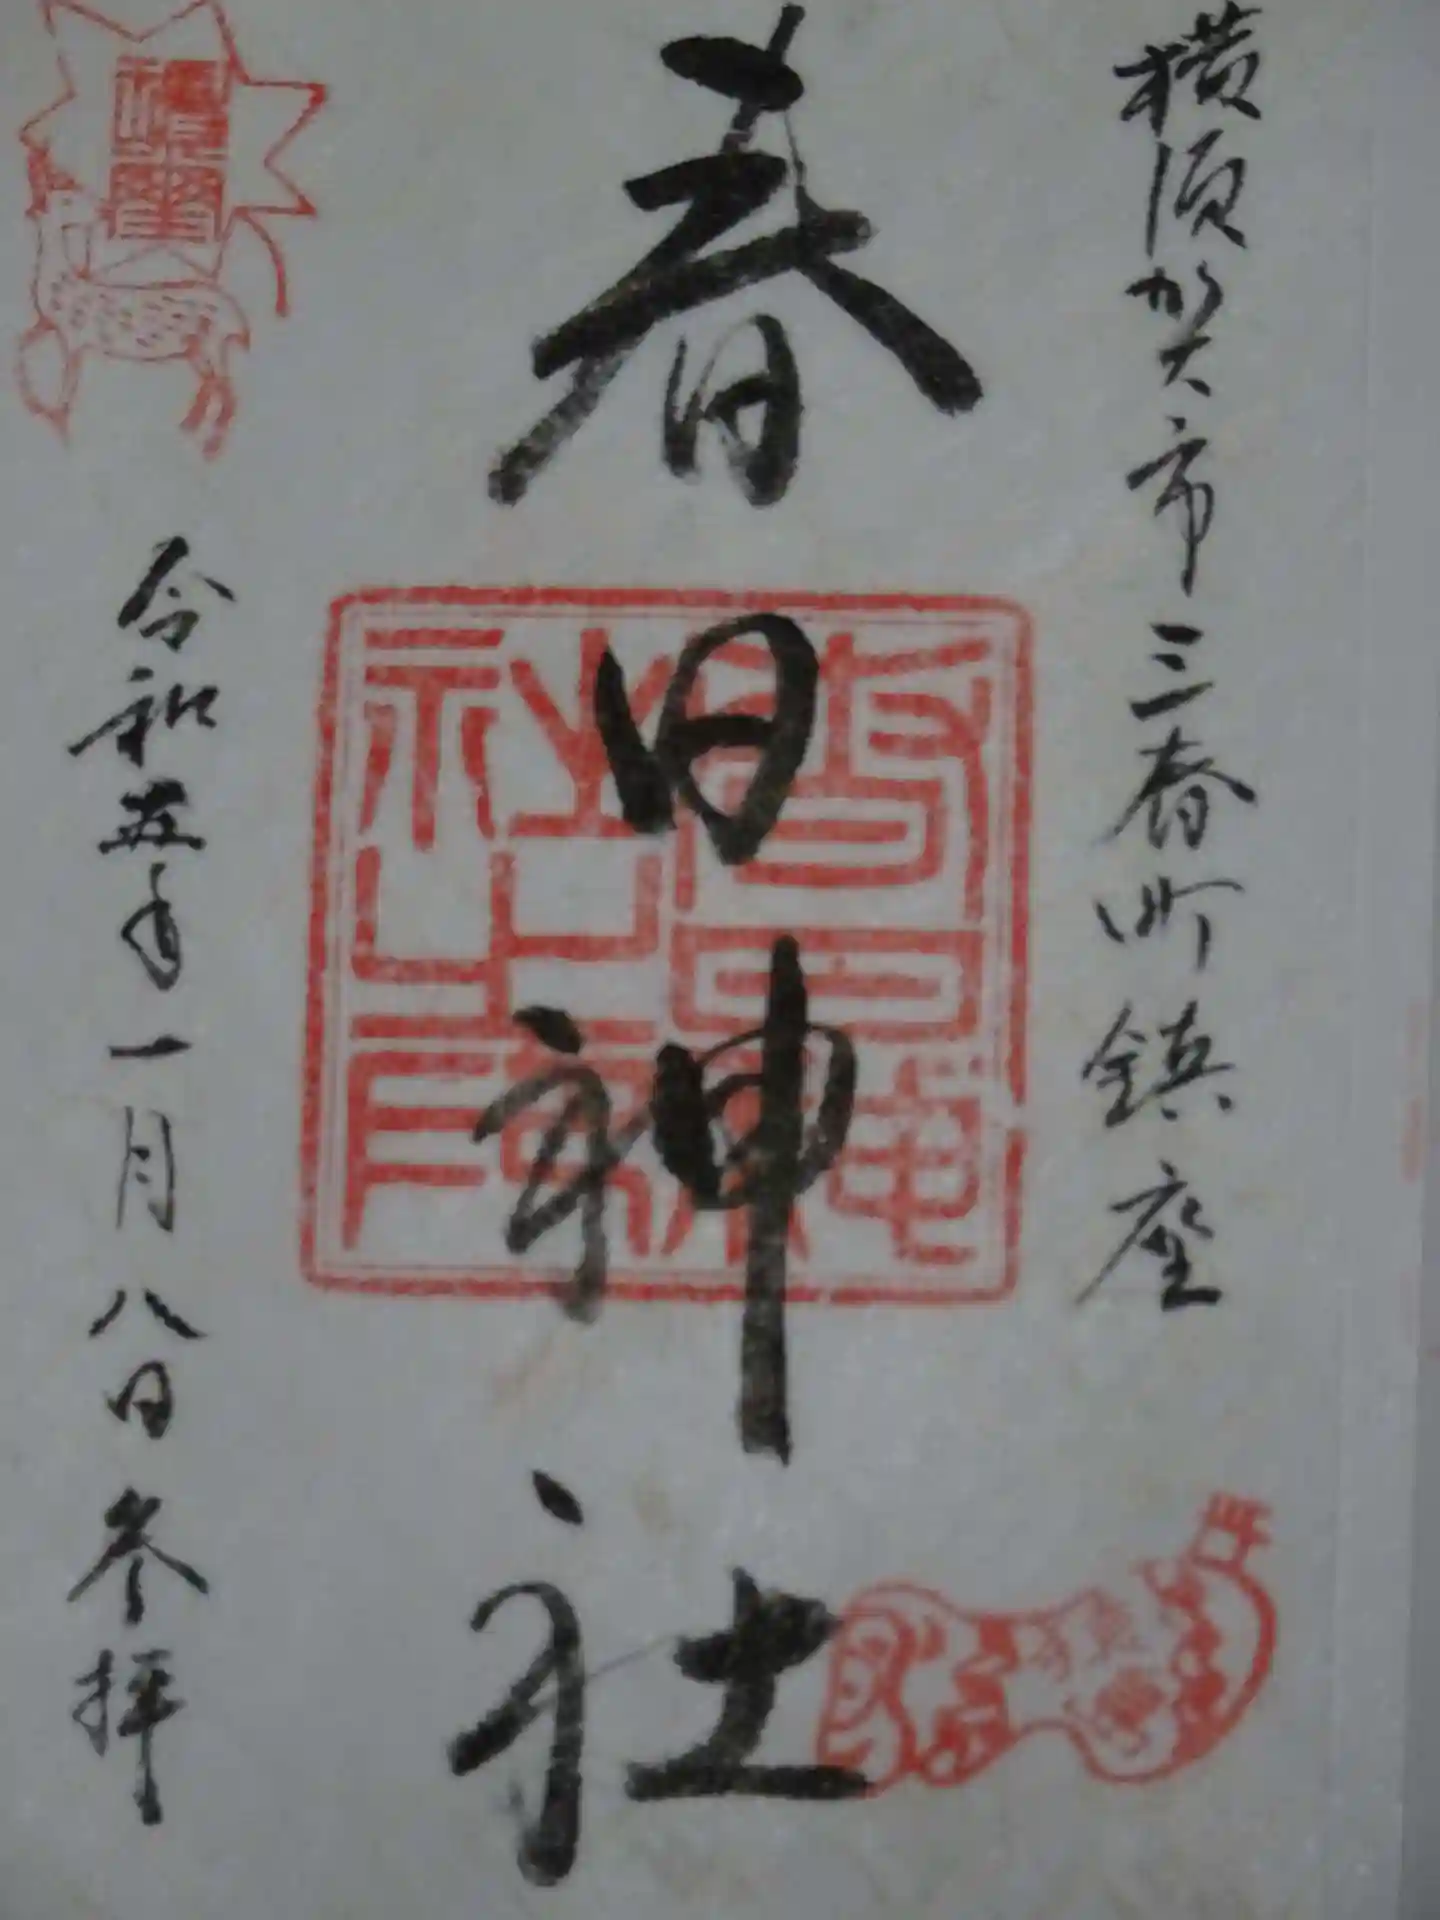 横須賀市三春町鎮座
春日神社
令和五年一月八日参拝